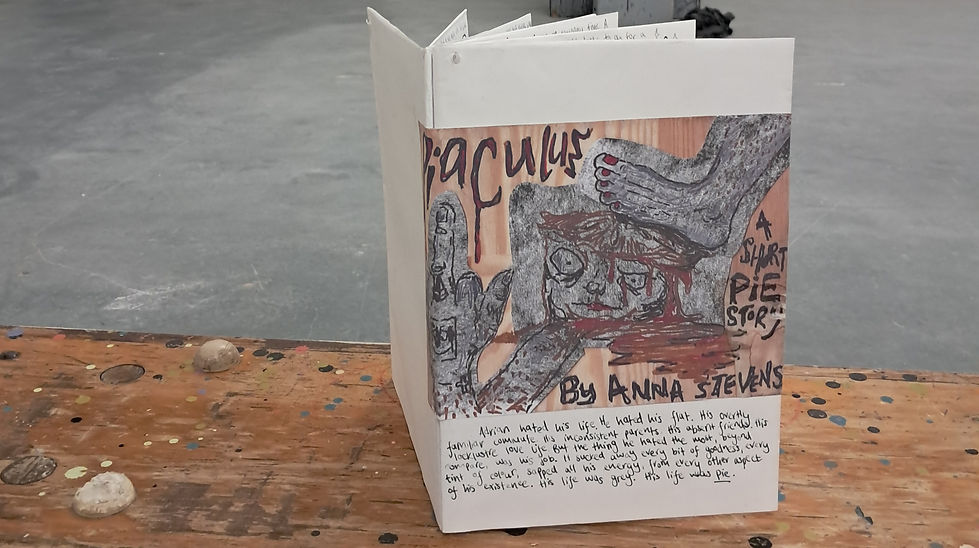 Piaculus
A
SHORT
PiE
STORY
By ANNA STEVENS
Adrian hated his life. He hated his flat. His overtly
familiar commute. His inconsistent parents. His absent friends. His
lacklustre love life. But the thing he hated the most, beyond
compare, was his job. It sucked away every bit of goodness, every
tint of colour, sapped all his energy, from every other aspect
of his existence. His life was grey. His life was Pie.